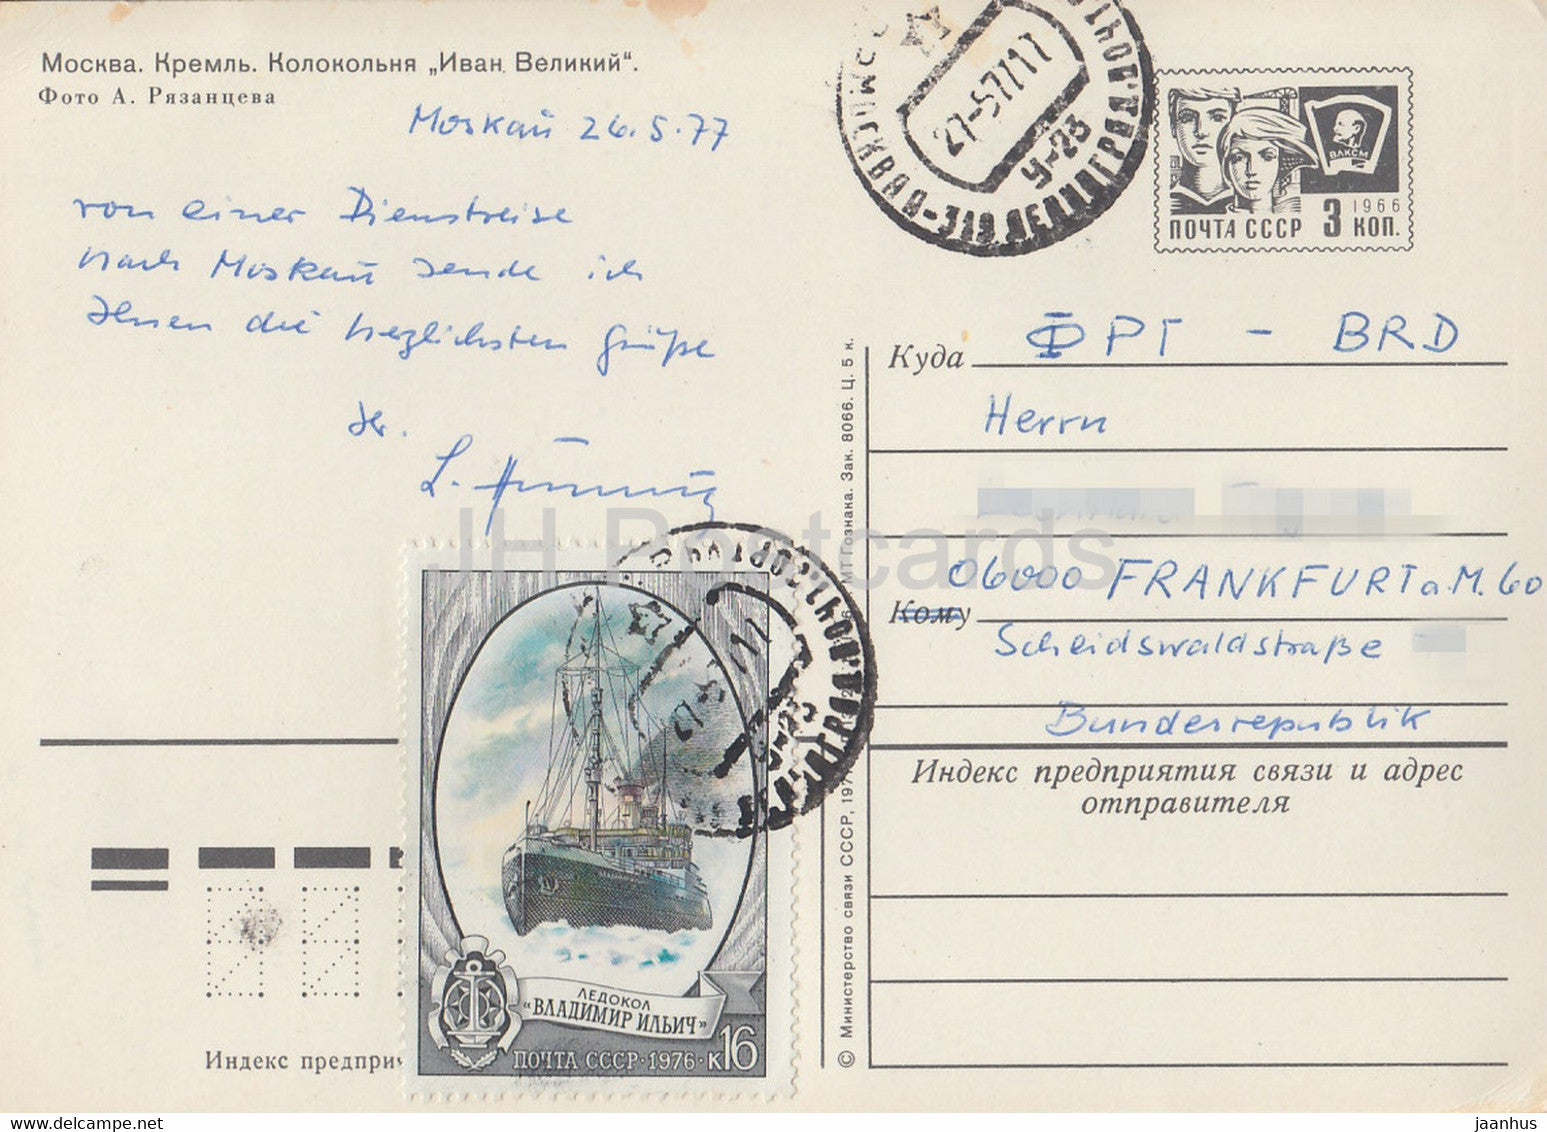 Москва. Кремль. Колокольня „Иван Великий“.
Фото А. Рязанцева
Moskau 26.5.77
von einer Dienstreise
nach Moskau sende ich
Ihnen die herzlichsten Grüße
Ihr.
L.
27-5 77 17
У-23
ВЛКСМ
1966
ПОЧТА СССР 3 КОП.
Куда ФРГ - BRD
Herrn
06000 FRANKFURT a.M. 60
Кому
Scheidswaldstraße
Bundesrepublik
Индекс предприятия связи и адрес
отправителя
© Министерство связи СССР, 197
МТ Гознака. Зак. 8066. Ц. 5 к.
ЛЕДОКОЛ
«ВЛАДИМИР ИЛЬИЧ»
ПОЧТА СССР·1976·К16
Индекс предпри
JH Postcards
jaanhus